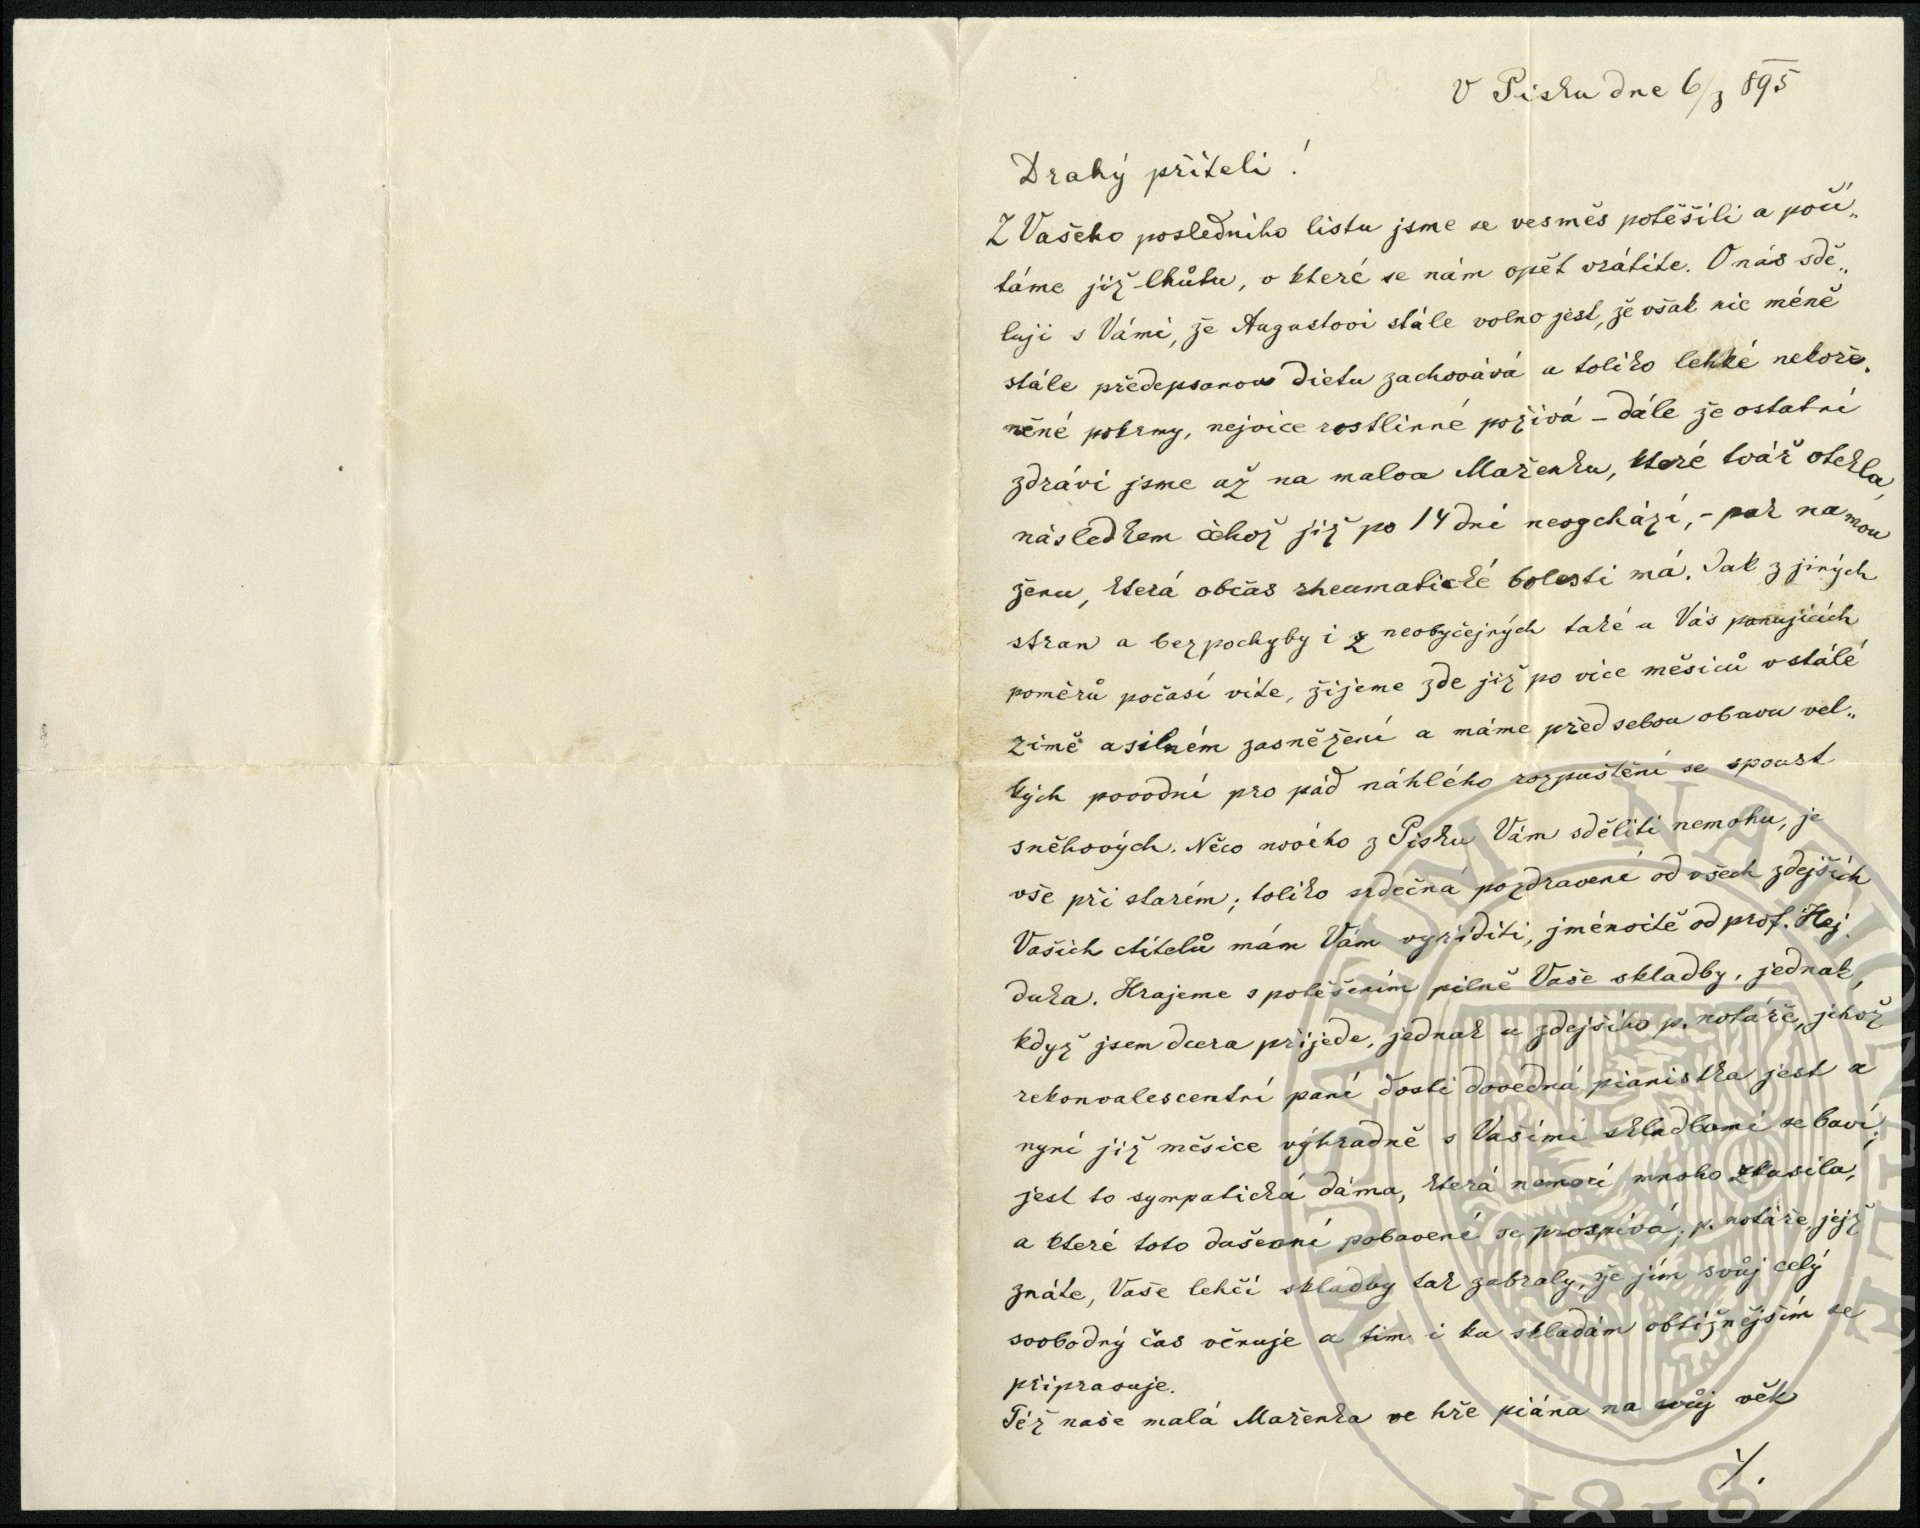 V Písku dne 6/3 895
Drahý příteli!
Z Vašeho posledního listu jsme se vesměs potěšili a počí„
táme již lhůtu, o které se nám opět vrátíte. O nás sdě„
luji s Vámi, že Augustovi stále volno jest, že však nic méně
stále předepsanou dietu zachovává a toliko lehké nekoře„
něné pokrmy, nejvíce rostlinné požívá – dále že ostatní
zdrávi jsme až na malou Mařenku, které tvář otekla,
následkem čehož již po 14 dní nevychází, – pak na mou
ženu, která občas rheumatické bolesti má. Jak z jiných
stran a bezpochyby i z neobyčejných také u Vás panujících
poměrů počasí víte, žijeme zde již po více měsíců v stálé
zimě a silném zasněžení a máme před sebou obavu vel„
kých povodní pro pád náhlého rozpuštění se spoust
sněhových. Něco nového z Písku Vám sděliti nemohu, je
vše při starém; toliko srdečná pozdravení od všech zdejších
Vašich ctitelů mám Vám vyříditi, jmenovitě od prof. Hej„
duka. Hrajeme s potěšením pilně Vaše skladby, jednak,
když jsem dcera přijede, jednak u zdejšího p. notáře, jehož
rekonvalescentní paní dosti dovedná pianistka jest a
nyní již měsíce výhradně s Vašimi skladbami se baví;
jest to sympatická dáma, která nemocí mnoho zkusila,
a které toto duševní pobavení se prospívá; p. notáře, jejž
znáte, Vaše lehčí skladby tak zabraly, že jim svůj celý
svobodný čas věnuje a tím i ku skladám obtížnějším se
připravuje.
Též naše malá Mařenka ve hře piána na svůj věk
./.
MUSEUM NATIONALE
1818